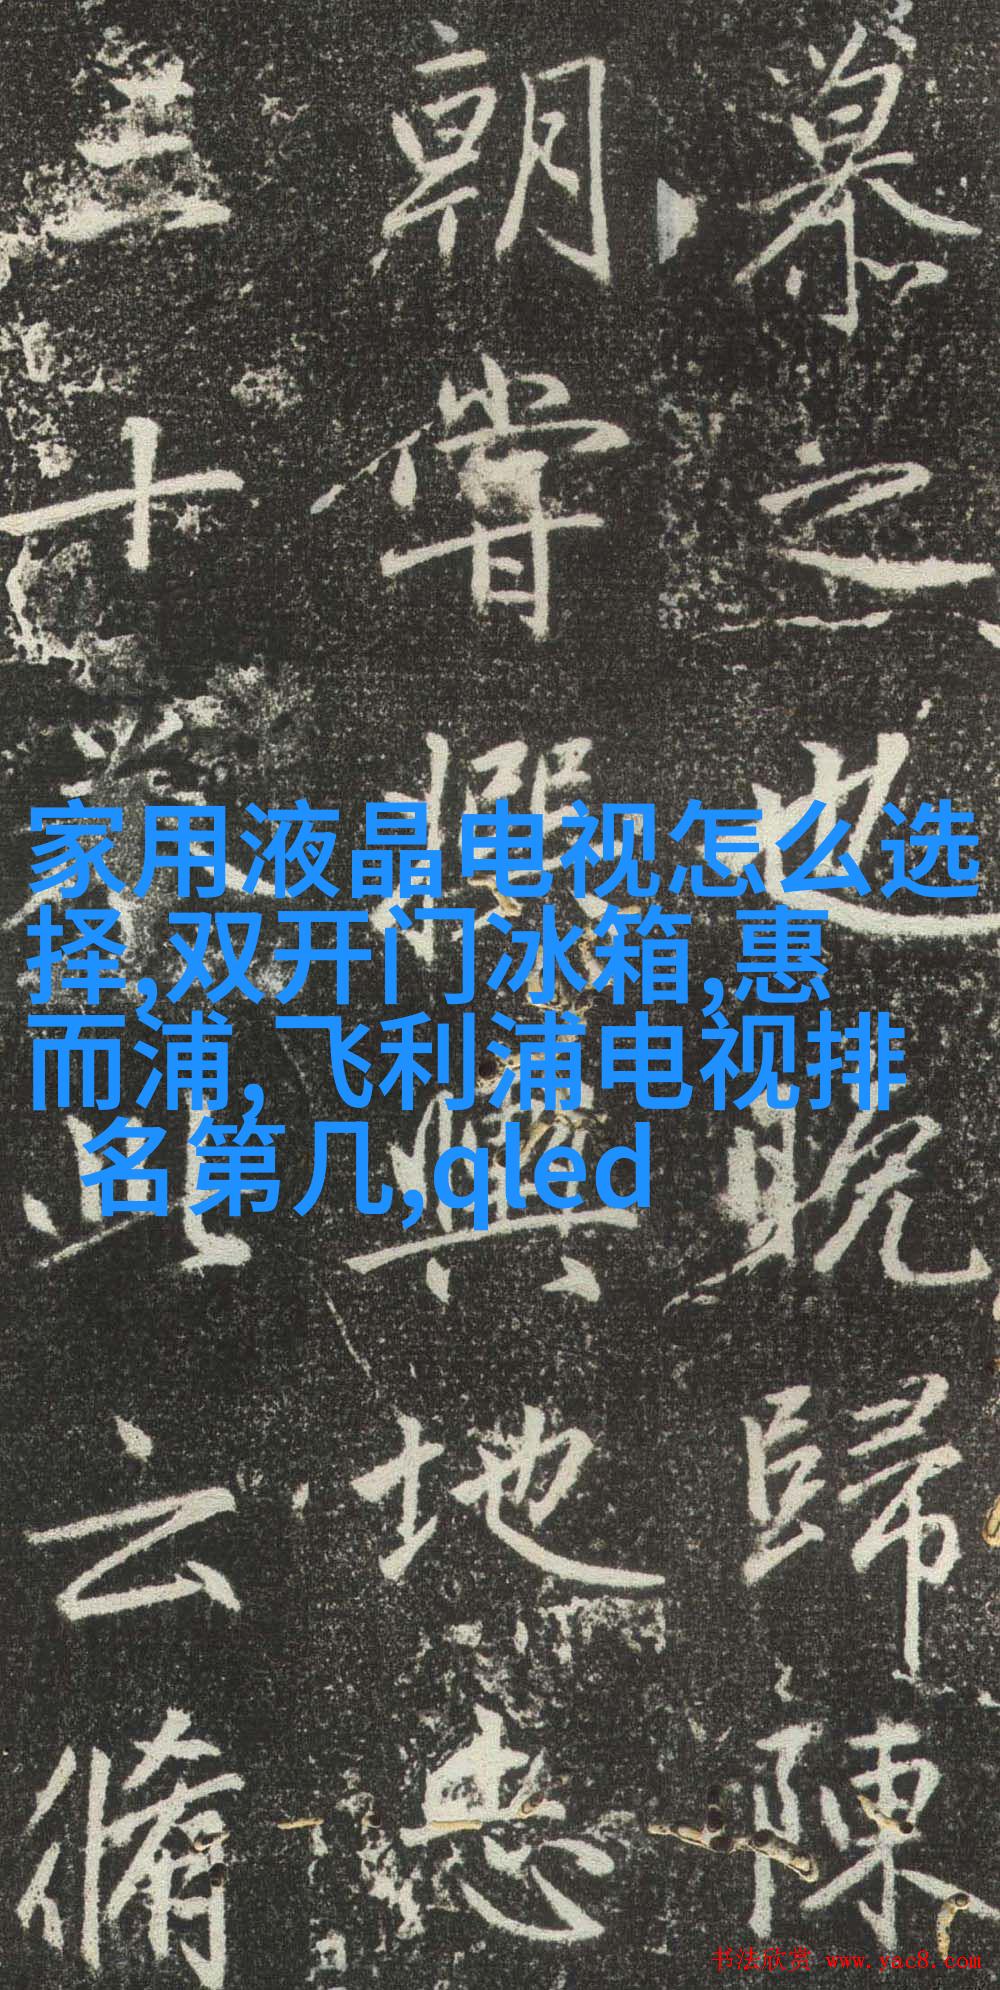 慕之地貺歸陳
朝嘗與地忠
十此云脩
家用液晶电视怎么选
择,双开门冰箱,惠
而浦, 飞利浦电视排
名第几,qled
书法欣赏 www.yac8.com